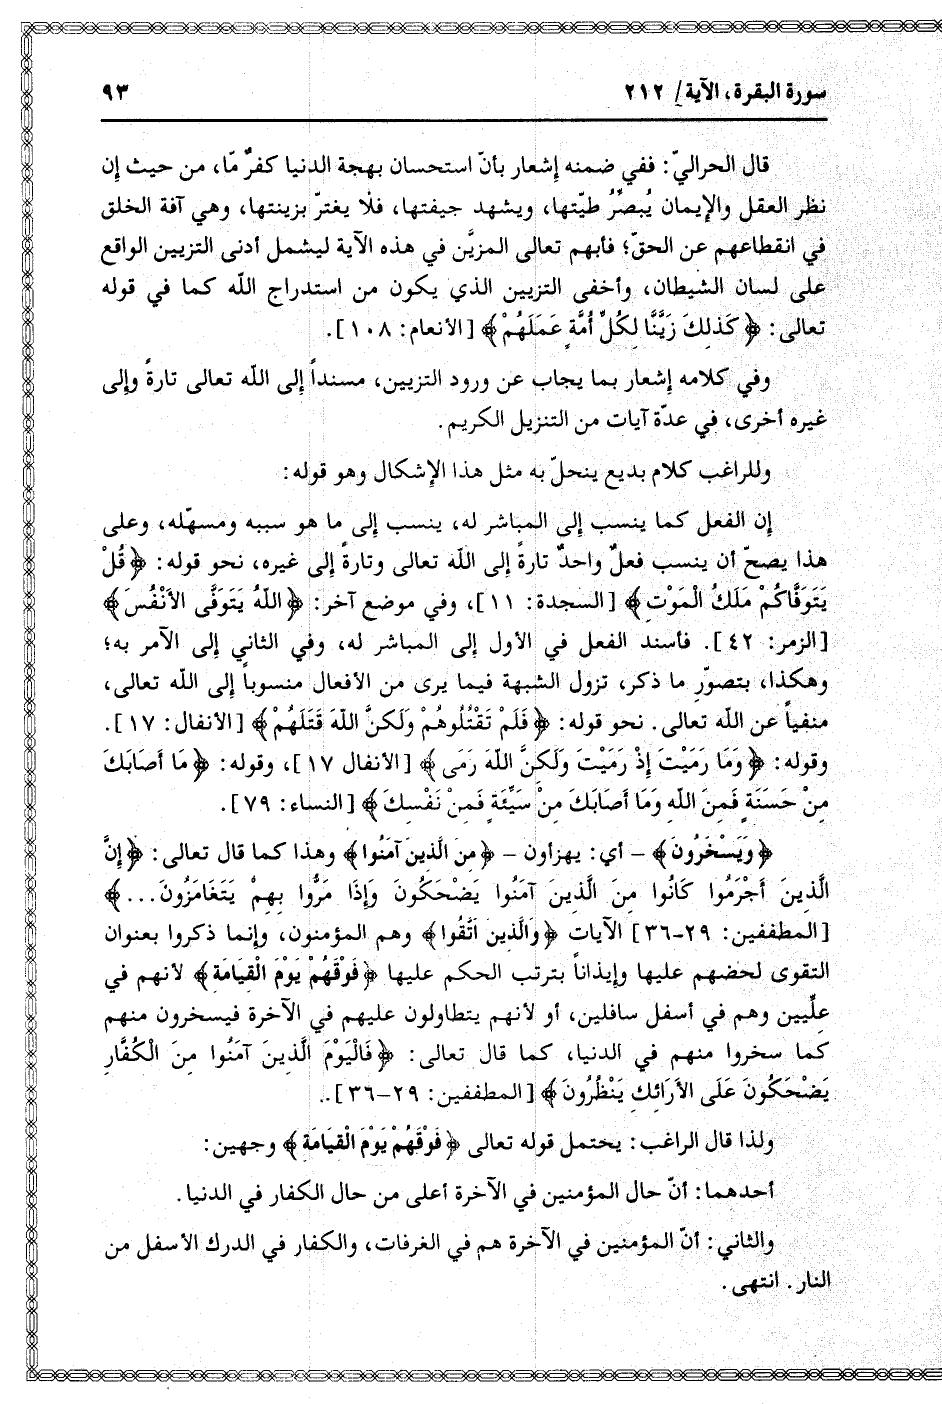 سورة البقرة، الآية/ ٢١٢
٩٣
قال الحراليّ: ففي ضمنه إشعار بأنّ استحسان بهجة الدنيا كفرٌ مّا، من حيث إن
نظر العقل والإيمان يُبصِّرُ طيّتها، ويشهد جيفتها، فلا يغترّ بزينتها، وهي آفة الخلق
في انقطاعهم عن الحقّ؛ فأبهم تعالى المزيَّن في هذه الآية ليشمل أدنى التزيين الواقع
على لسان الشيطان، وأخفى التزيين الذي يكون من استدراج الله كما في قوله
تعالى: ﴿كَذلِكَ زَيَّنَّا لِكُلِّ أُمَّةٍ عَمَلَهُمْ﴾ [الأنعام: ١٠٨].
وفي كلامه إشعار بما يجاب عن ورود التزيين، مسنداً إلى الله تعالى تارةً وإلى
غيره أخرى، في عدّة آيات من التنزيل الكريم.
وللراغب كلام بديع ينحلّ به مثل هذا الإشكال وهو قوله:
إن الفعل كما ينسب إلى المباشر له، ينسب إلى ما هو سببه ومسهّله، وعلى
هذا يصحّ أن ينسب فعلٌ واحدٌ تارةً إلى الله تعالى وتارةً إلى غيره، نحو قوله: ﴿قُلْ
يَتَوَفَّاكُمْ مَلَكُ المَوْتِ﴾ [السجدة: ١١]، وفي موضع آخر: ﴿اللهُ يَتَوَفَّى الأَنْفُسَ﴾
[الزمر: ٤٢]. فأسند الفعل في الأول إلى المباشر له، وفي الثاني إلى الآمر به؛
وهكذا، بتصوّر ما ذكر، تزول الشبهة فيما يرى من الأفعال منسوباً إلى الله تعالى،
منفياً عن الله تعالى. نحو قوله: ﴿فَلَمْ تَقْتُلُوهُمْ وَلَكنَّ اللهَ قَتَلَهُمْ﴾ [الأنفال: ١٧].
وقوله: ﴿وَمَا رَمَيْتَ إِذْ رَمَيْتَ وَلَكنَّ اللهَ رَمَى﴾ [الأنفال ١٧]، وقوله: ﴿مَا أَصَابَكَ
مِنْ حَسَنَةٍ فَمِنَ اللهِ وَمَا أَصَابَكَ مِنْ سَيِّئَةٍ فَمِنْ نَفْسِكَ﴾ [النساء: ٧٩].
﴿وَيَسْخَرُونَ﴾ – أي: يهزأون – ﴿مِنَ الَّذِينَ آمَنُوا﴾ وهذا كما قال تعالى: ﴿إِنَّ
الَّذِينَ أَجْرَمُوا كَانُوا مِنَ الَّذِينَ آمَنُوا يَضْحَكُونَ وَإِذَا مَرُّوا بِهِمْ يَتَغَامَزُونَ...﴾
[المطففين: ٢٩-٣٦] الآيات ﴿وَالَّذِينَ اتَّقُوا﴾ وهم المؤمنون، وإنما ذكروا بعنوان
التقوى لحضهم عليها وإيذاناً بترتب الحكم عليها ﴿فَوْقَهُمْ يَوْمَ الْقِيَامَةِ﴾ لأنهم في
علِّيين وهم في أسفل سافلين، أو لأنهم يتطاولون عليهم في الآخرة فيسخرون منهم
كما سخروا منهم في الدنيا، كما قال تعالى: ﴿فَالْيَوْمَ الَّذِينَ آمَنُوا مِنَ الْكُفَّارِ
يَضْحَكُونَ عَلَى الأَرَائِكِ يَنْظُرُونَ﴾ [المطففين: ٢٩-٣٦]..
ولذا قال الراغب: يحتمل قوله تعالى ﴿فَوْقَهُمْ يَوْمَ الْقِيَامَةِ﴾ وجهين:
أحدهما: أنّ حال المؤمنين في الآخرة أعلى من حال الكفار في الدنيا.
والثاني: أنّ المؤمنين في الآخرة هم في الغرفات، والكفار في الدرك الأسفل من
النار. انتهى.